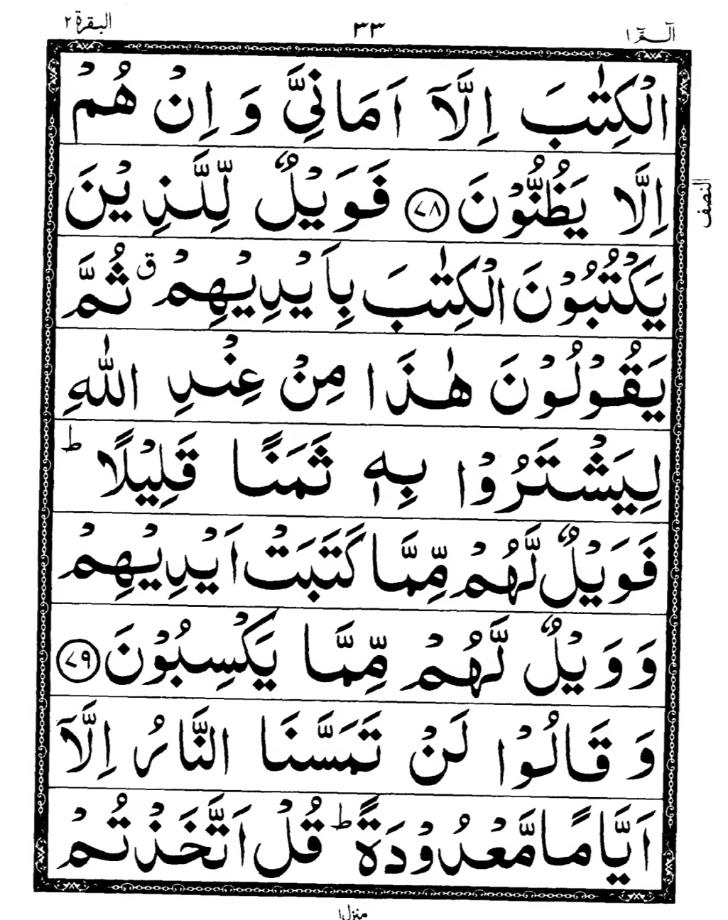 الٓـمّٓ ١ ٣٣ البقرة ٢
الْكِتٰبَ اِلَّاۤ اَمَانِيَّ وَ اِنْ هُمْ
اِلَّا يَظُنُّوْنَ ﴿٧٨﴾ فَوَيْلٌ لِّلَّذِيْنَ
النصف
يَكْتُبُوْنَ الْكِتٰبَ بِاَيْدِيْهِمْ ۗق ثُمَّ
يَقُوْلُوْنَ هٰذَا مِنْ عِنْدِ اللّٰهِ
لِيَشْتَرُوْا بِهٖ ثَمَنًا قَلِيْلًا ؕ
فَوَيْلٌ لَّهُمْ مِّمَّا كَتَبَتْ اَيْدِيْهِمْ
وَ وَيْلٌ لَّهُمْ مِّمَّا يَكْسِبُوْنَ ﴿٧٩﴾
وَ قَالُوْا لَنْ تَمَسَّنَا النَّارُ اِلَّاۤ
اَيَّامًا مَّعْدُوْدَةً ؕ قُلْ اَتَّخَذْتُمْ
منزل ١